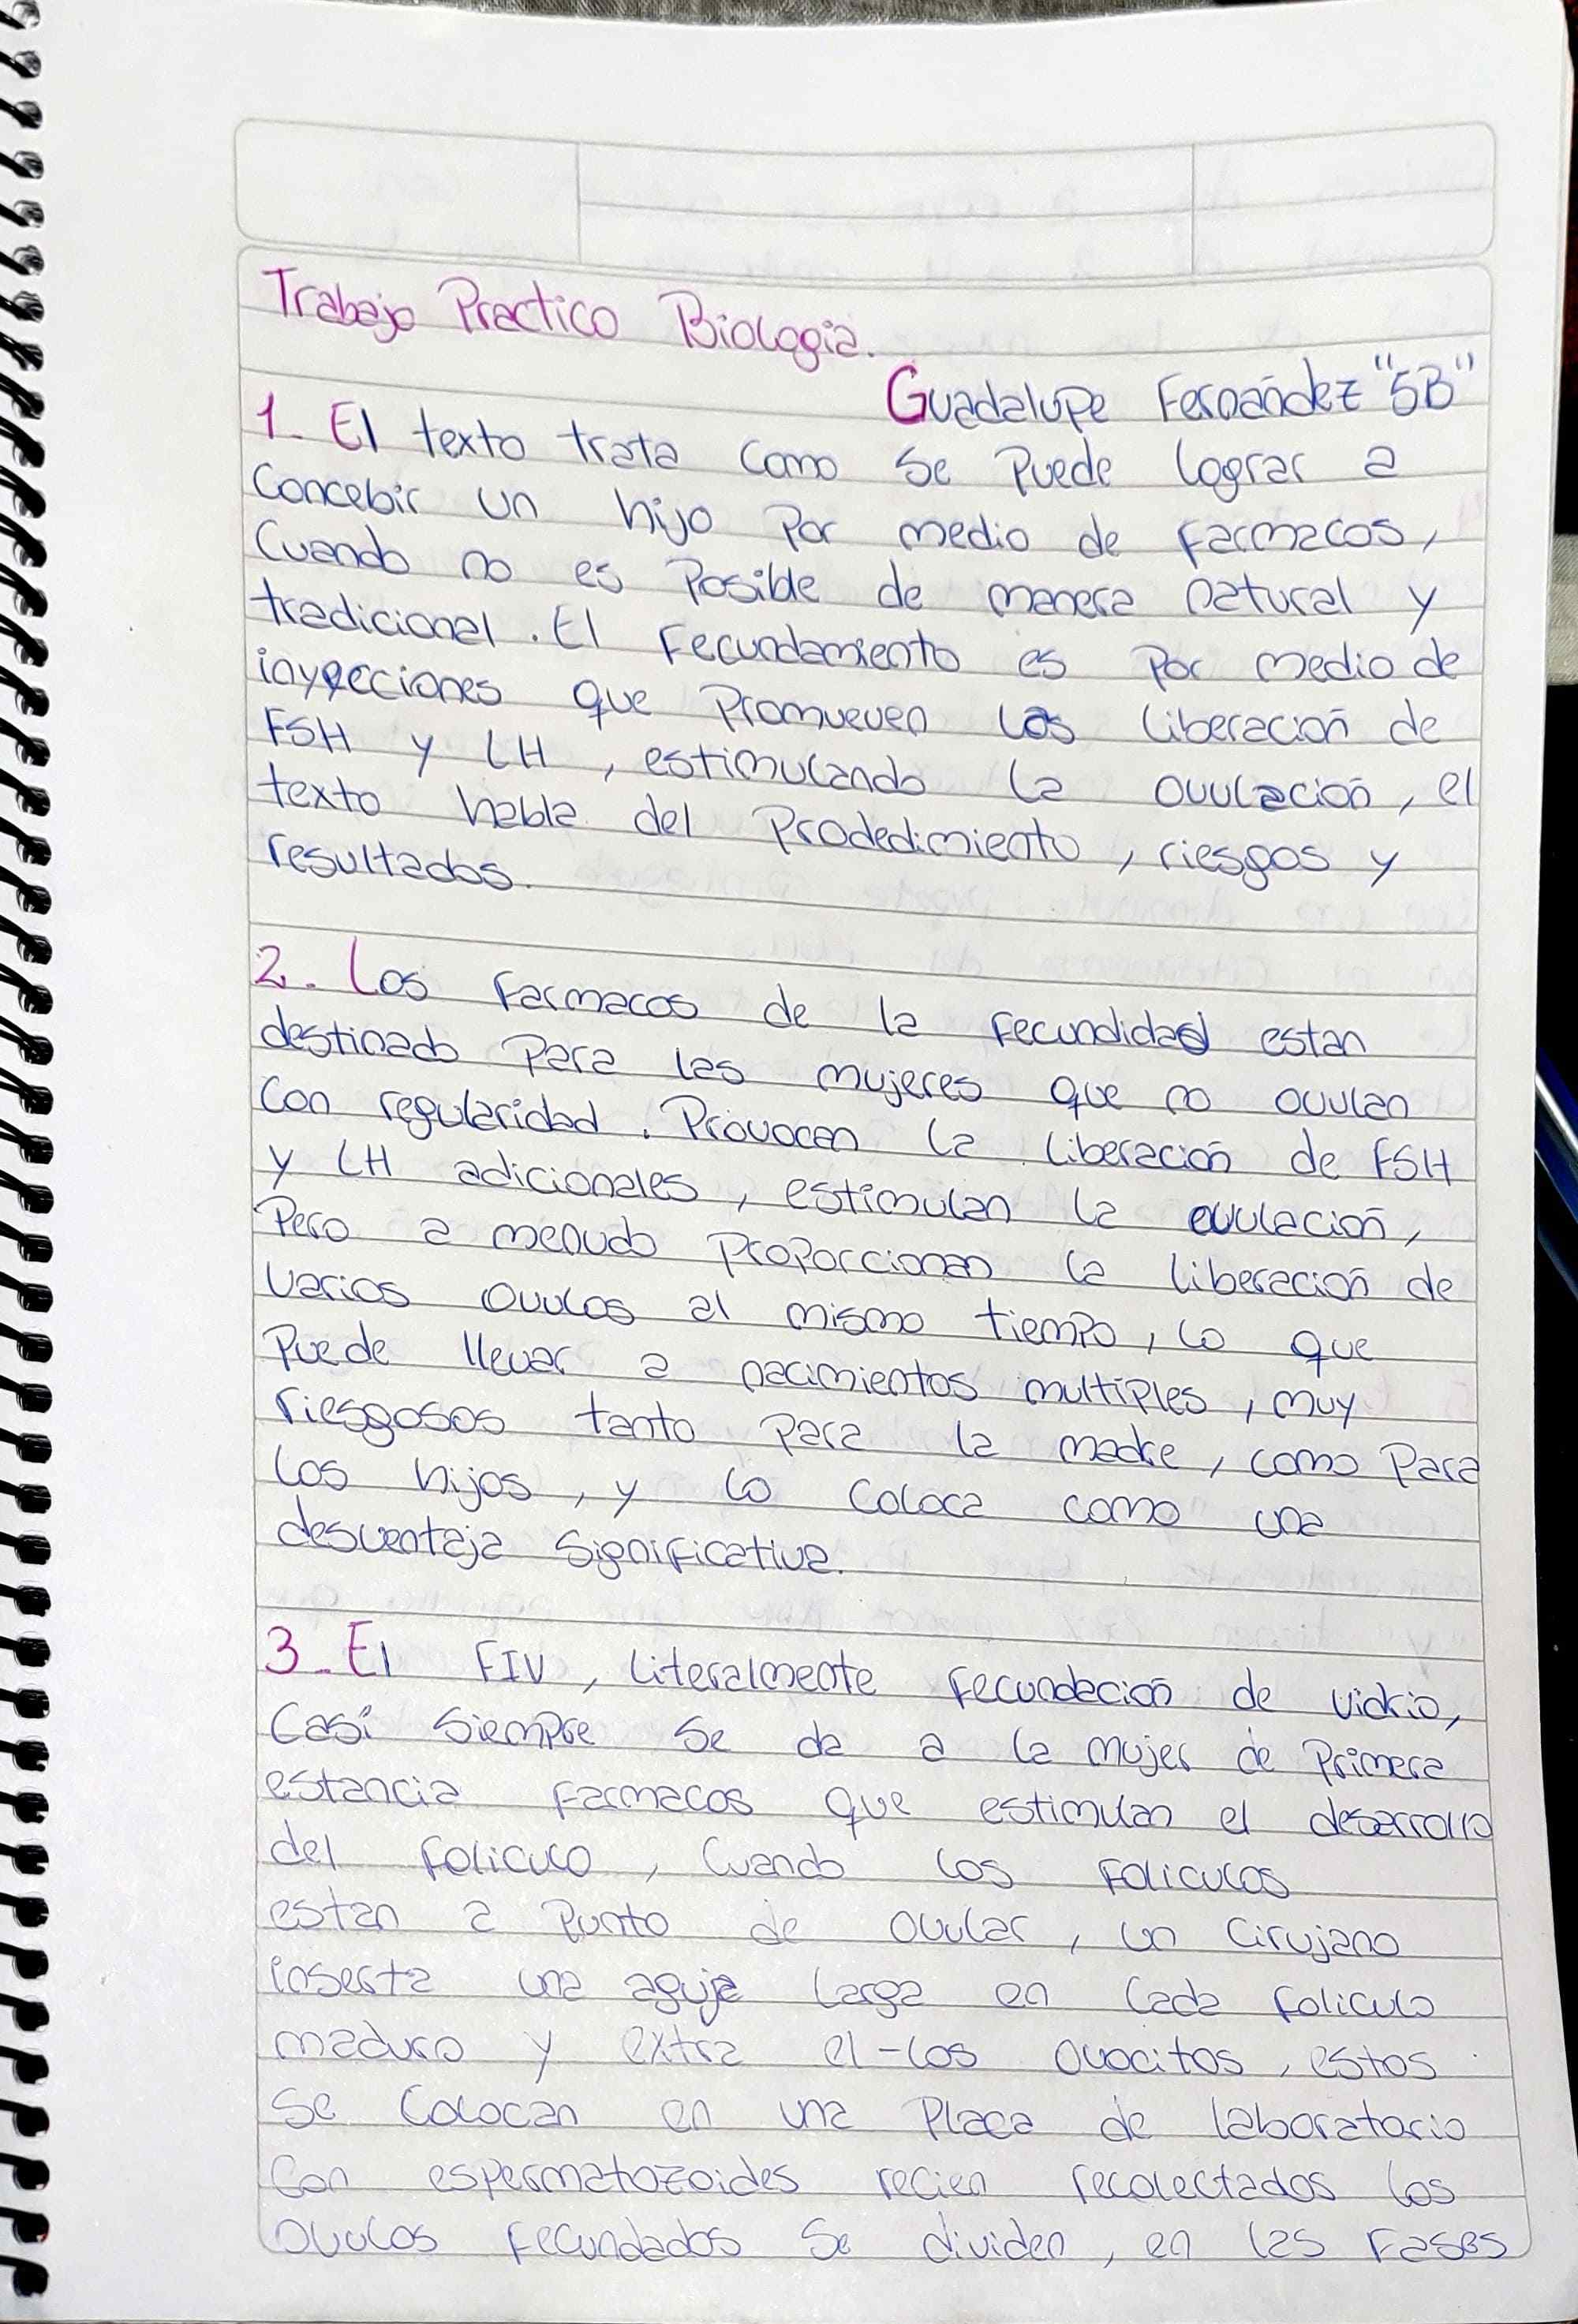 Trabajo Practico Biologia.
Guadalupe Fernández "5B"
1. El texto trata como se puede lograr a
concebir un hijo por medio de farmacos,
Cuando no es posible de manera natural y
tradicional. El fecundamiento es por medio de
inyecciones que promueven los liberación de
FSH y LH, estimulando la ovulación, el
texto habla del prodedimiento, riesgos y
resultados.
2. Los farmacos de la fecundidad estan
destinado para las mujeres que no ovulan
con regularidad. Provocan la liberación de FSH
y LH adicionales, estimulan la ovulación,
Pero a menudo proporcionan la liberación de
varios ovulos al mismo tiempo, lo que
puede llevar a nacimientos multiples, muy
riesgosos tanto para la madre, como para
los hijos, y lo coloca como una
desventaja significativa.
3. El FIV, literalmente fecundación de vidrio,
Casi siempre se da a la mujer de primera
estancia farmacos que estimulan el desarrollo
del foliculo, Cuando los foliculos
estan a punto de ovular, un cirujano
inserta una aguja larga en cada foliculo
maduro y extra el-los ovocitos, estos
se colocan en una placa de laboratorio
con espermatozoides recien recolectados los
ovulos fecundados se dividen, en las fases